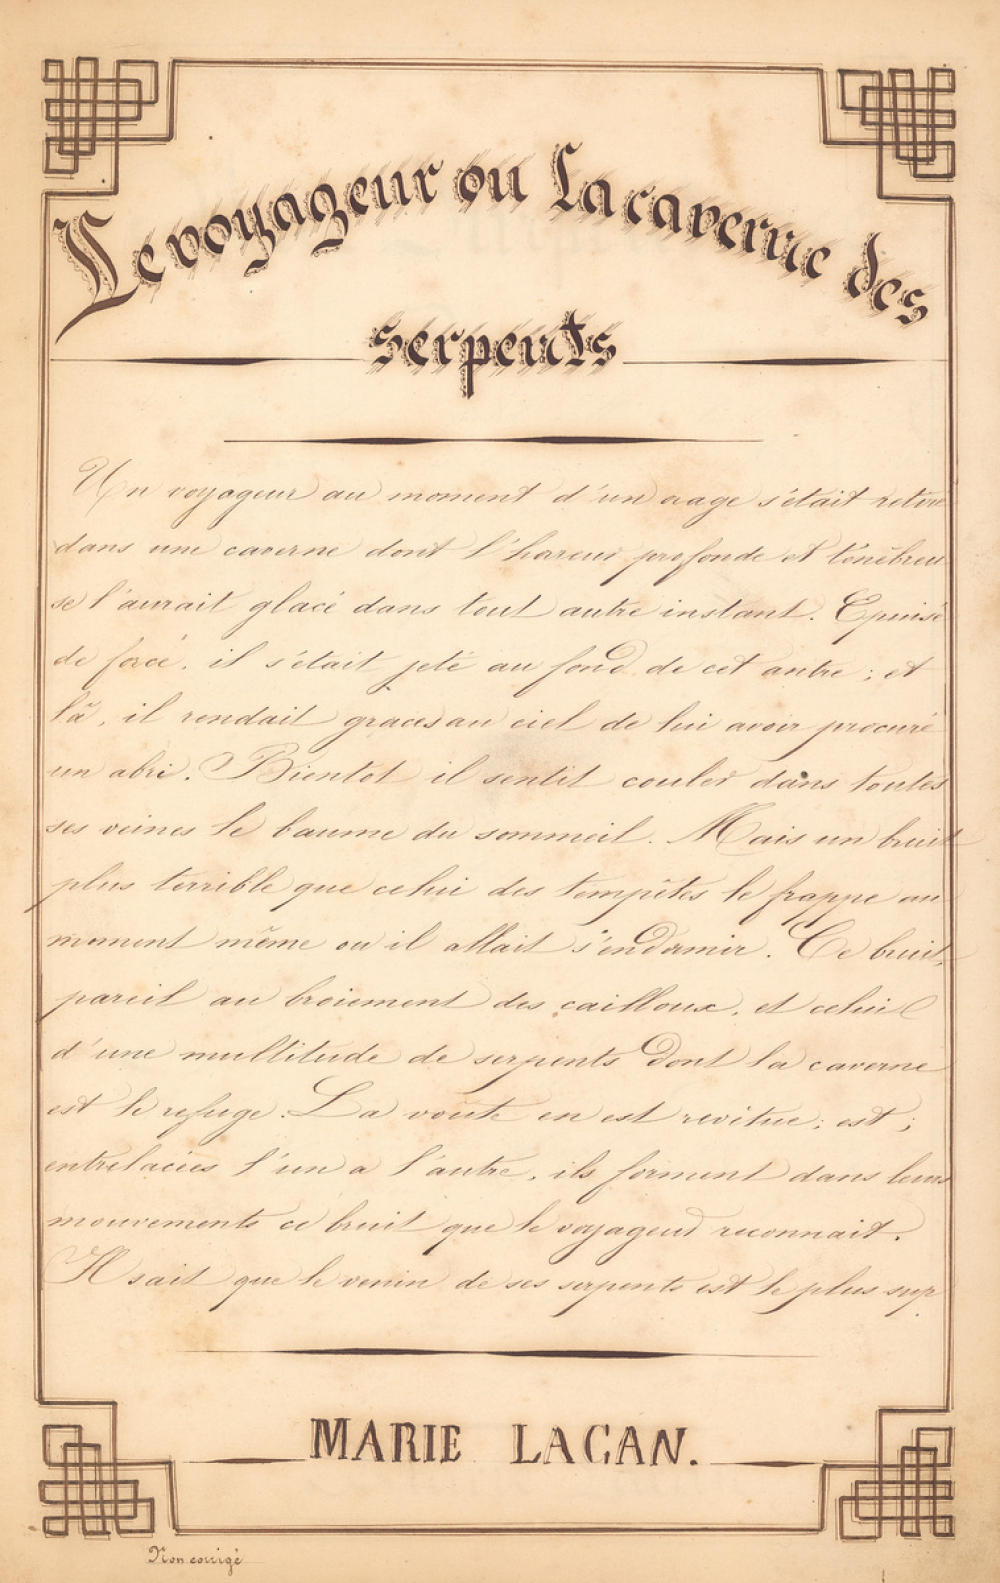 Le voyageur ou La caverne des
serpents
Un voyageur au moment d'un orage s'était retiré
dans une caverne dont l'horeur profonde et ténébreu
se l'aurait glacé dans tout autre instant. Epuisé
de forcé, il s'était jeté au fond de cet antre ; et
là, il rendait graces au ciel de lui avoir procuré
un abri. Bientot il sentit couler dans toutes
ses veines le baume du sommeil. Mais un bruit
plus terrible que celui des tempêtes le frappe au
moment même ou il allait s'endormir. Ce bruit,
pareil au broiement des cailloux, et celui
d'une multitude de serpents dont la caverne
est le refuge. La voute en est revitue ; est ;
entrelacées l'un a l'autre, ils forment dans leurs
mouvements ce bruit que le voyageur reconnait.
Il sait que le venin de ses serpents est le plus sup
MARIE LACAN.
Non corrigé